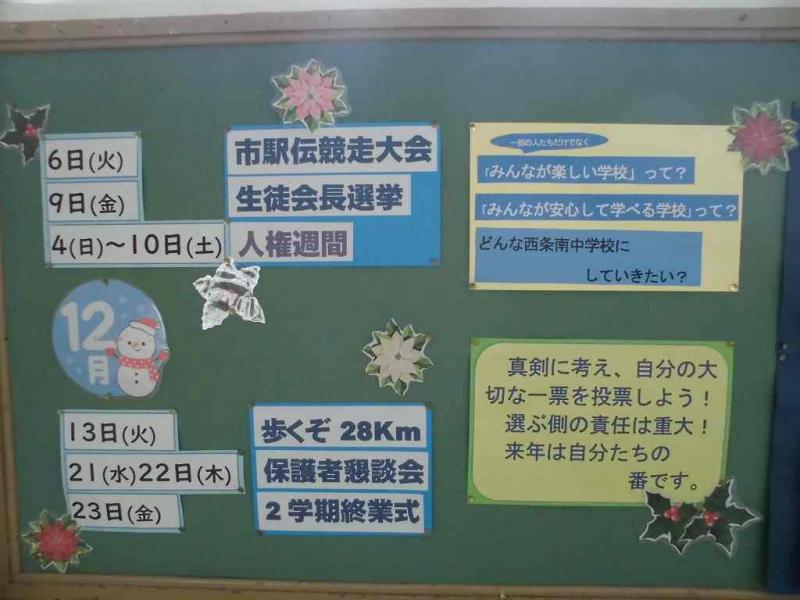 6日(火)
市駅伝競走大会
9日(金)
生徒会長選挙
4(日)～10日(土)
人権週間
12
月
13日(火)
歩くぞ 28Km
21(水)22日(木)
保護者懇談会
23日(金)
2学期終業式
一部の人たちだけでなく
「みんなが楽しい学校」って？
「みんなが安心して学べる学校」って？
どんな西条南中学校に
していきたい？
真剣に考え、自分の大
切な一票を投票しよう！
選ぶ側の責任は重大！
来年は自分たちの
番です。